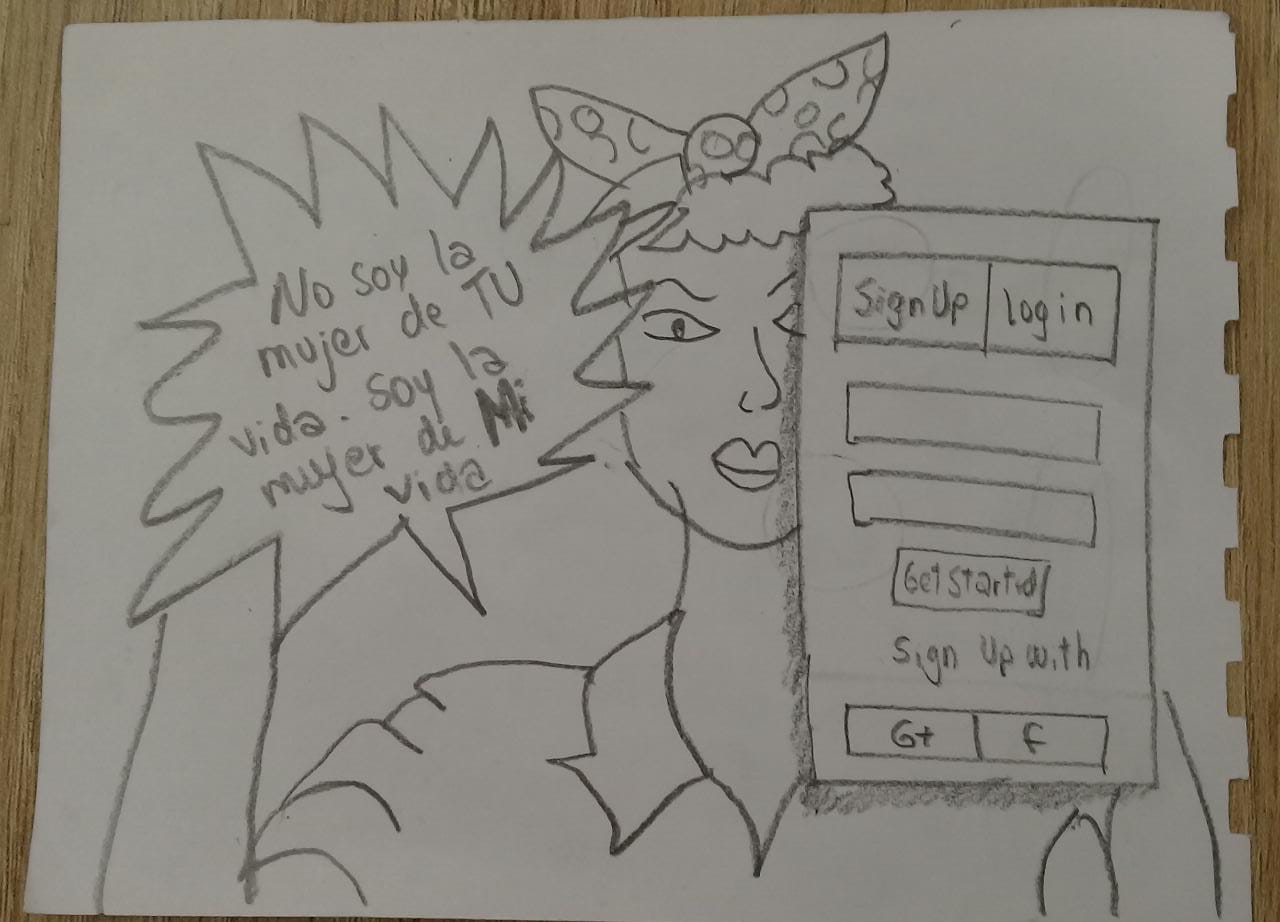 No soy la
mujer de TU
vida. soy la
mujer de Mi
vida
Sign Up
log in
Get Started
Sign Up with
G+
f